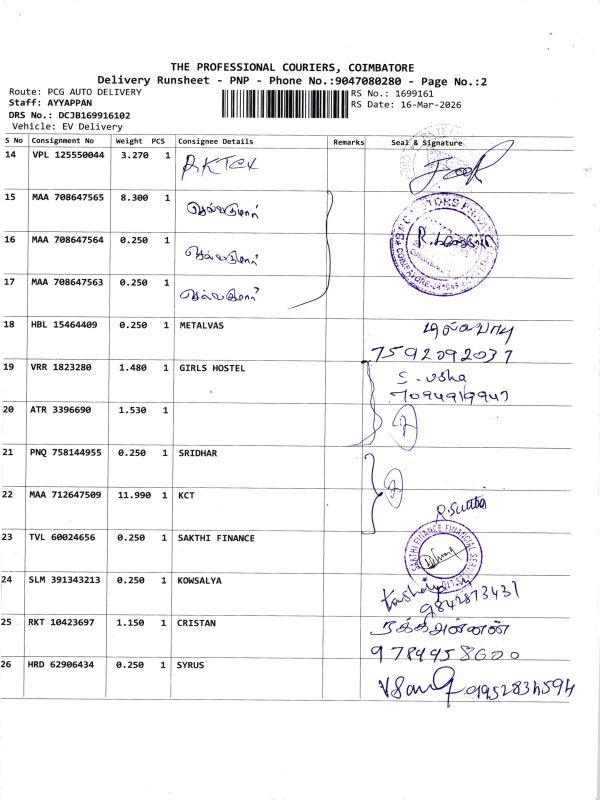 THE PROFESSIONAL COURIERS, COIMBATORE
Delivery Runsheet - PNP - Phone No.:9047080280 - Page No.:2
Route: PCG AUTO DELIVERY RS No.: 1699161
Staff: AYYAPPAN RS Date: 16-Mar-2026
DRS No.: DCJB169916102
Vehicle: EV Delivery
S No Consignment No Weight PCS Consignee Details Remarks Seal & Signature
14 VPL 125550044 3.270 1 RKTex
15 MAA 708647565 8.300 1 செல்வகுமார்
16 MAA 708647564 0.250 1 செல்வகுமார்
17 MAA 708647563 0.250 1 செல்வகுமார்
18 HBL 15464409 0.250 1 METALVAS
7592092037
19 VRR 1823280 1.480 1 GIRLS HOSTEL S. usha
7094919947
20 ATR 3396690 1.530 1
21 PNQ 758144955 0.250 1 SRIDHAR
22 MAA 712647509 11.990 1 KCT
23 TVL 60024656 0.250 1 SAKTHI FINANCE
SAKTHI FINANCE FINANCIAL SERVICES LTD
24 SLM 391343213 0.250 1 KOWSALYA
9842873431
25 RKT 10423697 1.150 1 CRISTAN
9784958600
26 HRD 62906434 0.250 1 SYRUS